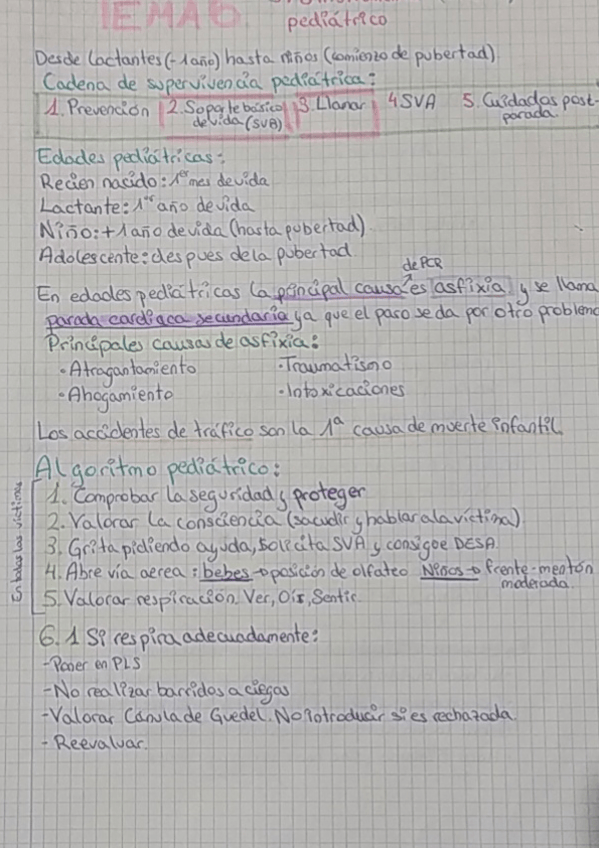 TEMA 6.
pediátrico
Desde lactantes (-1año) hasta niños (comienzo de pubertad).
Cadena de supervivencia pediátrica:
1. Prevención 2. Soporte básico de vida (SVB) 3. Llamar 4 SVA 5. Cuidados post-parada.
Edades pediátricas:
Recien nacido: 1er mes de vida
Lactante: 1er año de vida
Niño: +1 año de vida (hasta pubertad)
Adolescente: despues de la pubertad
En edades pediátricas la principal causa de PCR es asfixia y se llama
parada cardiaca secundaria ya que el paro se da por otro problema
Principales causas de asfixia:
·Atragantamiento ·Traumatismo
·Ahogamiento ·Intoxicaciones
Los accidentes de tráfico son la 1ª causa de muerte infantil.
Algoritmo pediátrico:
1. Comprobar la seguridad y proteger
2. Valorar la consciencia (sacudir y hablar a la víctima)
3. Grita pidiendo ayuda, solicita SVA y consigue DESA
4. Abre vía aerea: bebes→posición de olfateo Niños→frente-mentón moderada.
5. Valorar respiración. Ver, Oír, Sentir
6. 1 Si respira adecuadamente:
-Poner en PLS
-No realizar barridos a ciegas
-Valorar Cánula de Guedel. No introducir si es rechazada.
-Reevaluar.